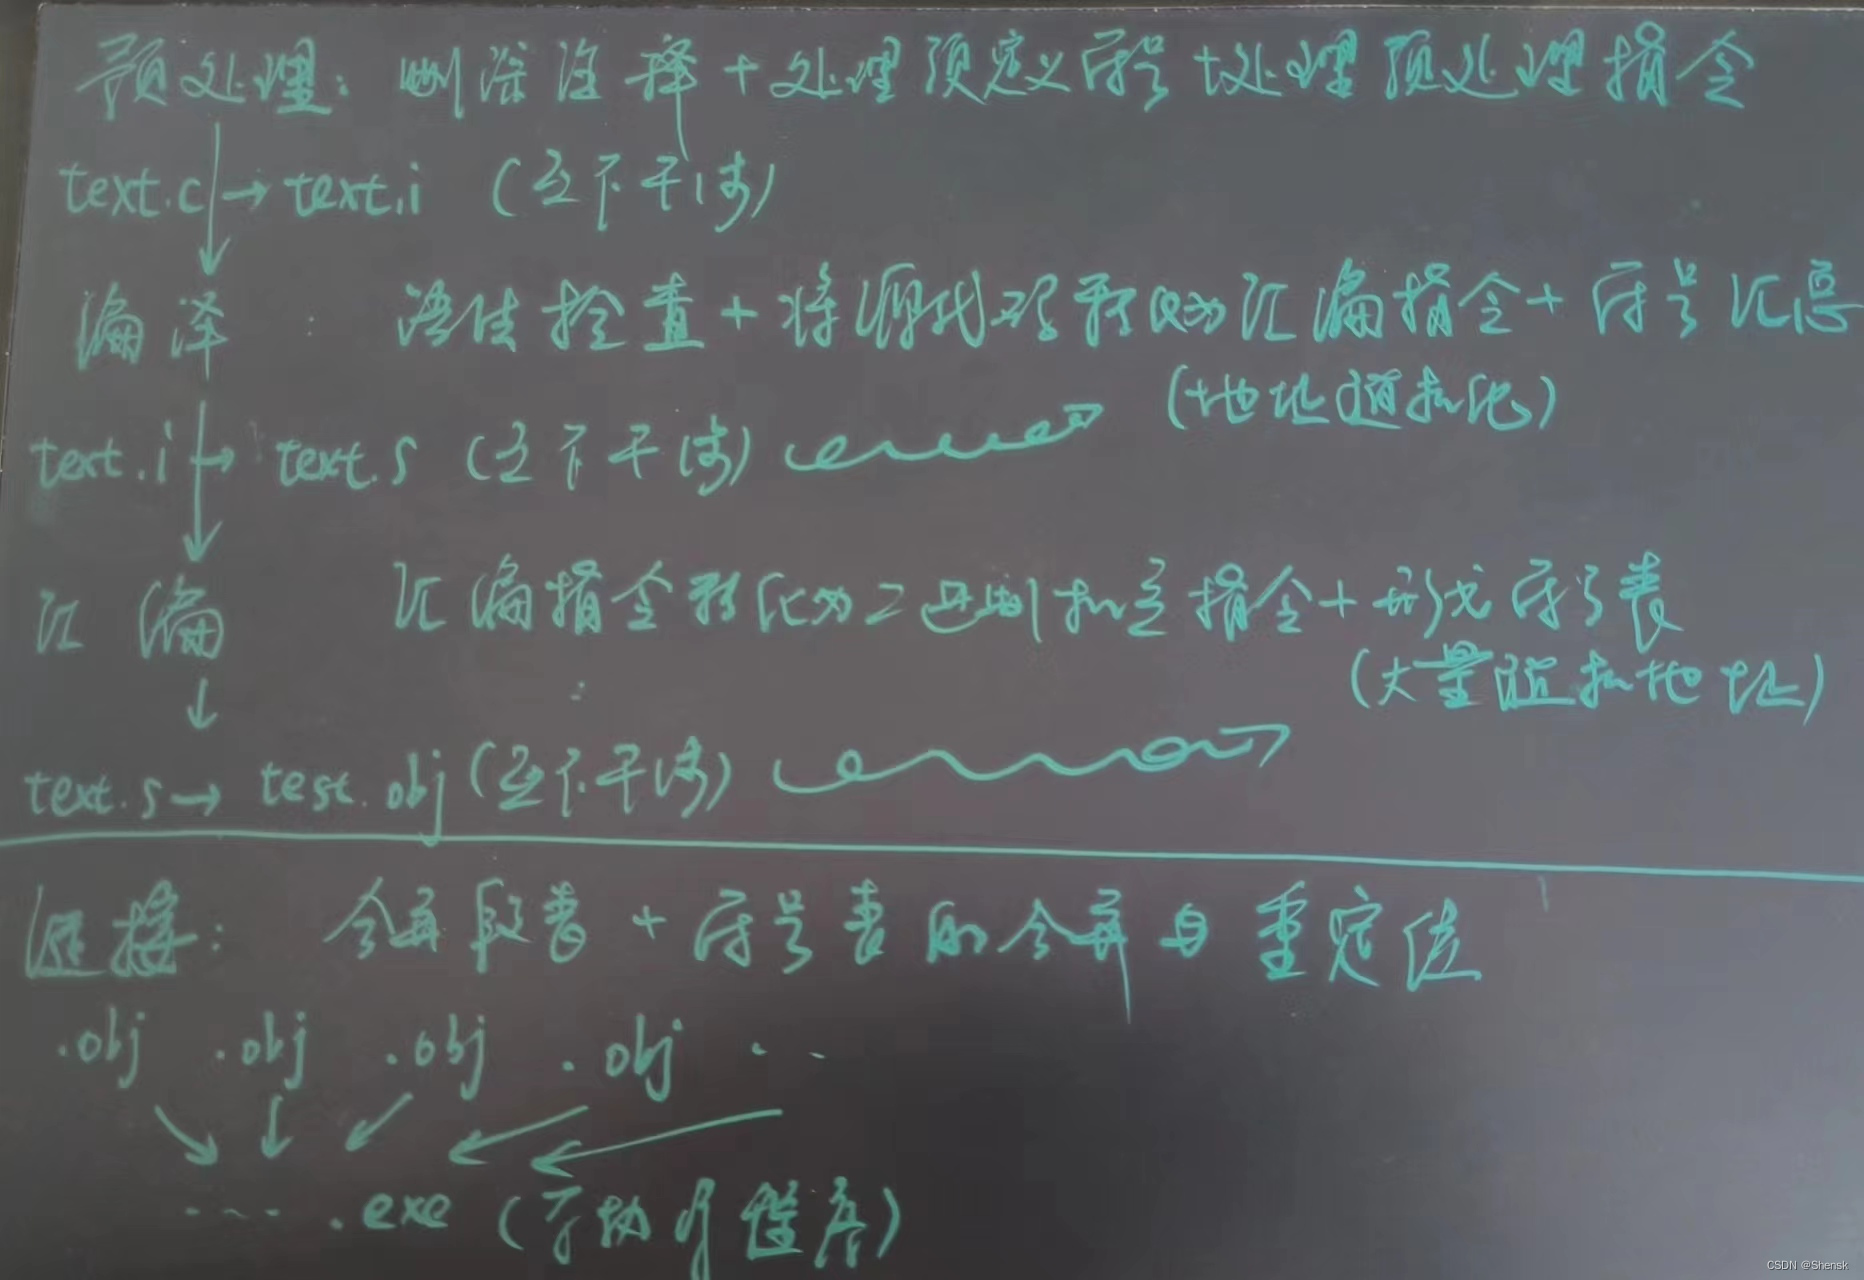 预处理: 删除注释+处理预定义符号+处理预处理指令
text.c→text.i (互不干涉)
编译: 语法检查+将源代码转化为汇编指令+符号汇总
(地址随机化)
text.i→text.s (互不干涉)
汇编 汇编指令转化为二进制机器指令+形成符号表
(大量随机地址)
text.s→test.obj (互不干涉)
链接: 合并段表+符号表的合并与重定位
.obj .obj .obj .obj ..
.... .exe (可执行程序)
CSDN @Shensk